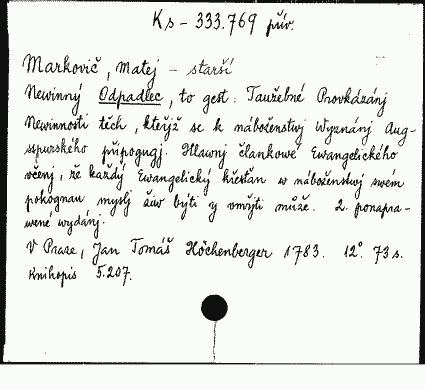 Ks - 333.769 přív.
Markovič, Matej - starší
Newinný Odpadlec, to gest: Taužebné Prokázánj
Newinnosti těch, kteřjž se k náboženstwj Wyznánj Aug-
sspurského připogugj. Hlawnj člankowe Ewangelického
včenj, že každý Ewangelický křestan w náboženstwj swém
pokognau myslj žiw býti y vmřjti může. 2. ponapra-
wené wydánj.
V Praze, Jan Tomáš Höchenberger 1783. 12°. 73 s.
Knihopis 5.207.